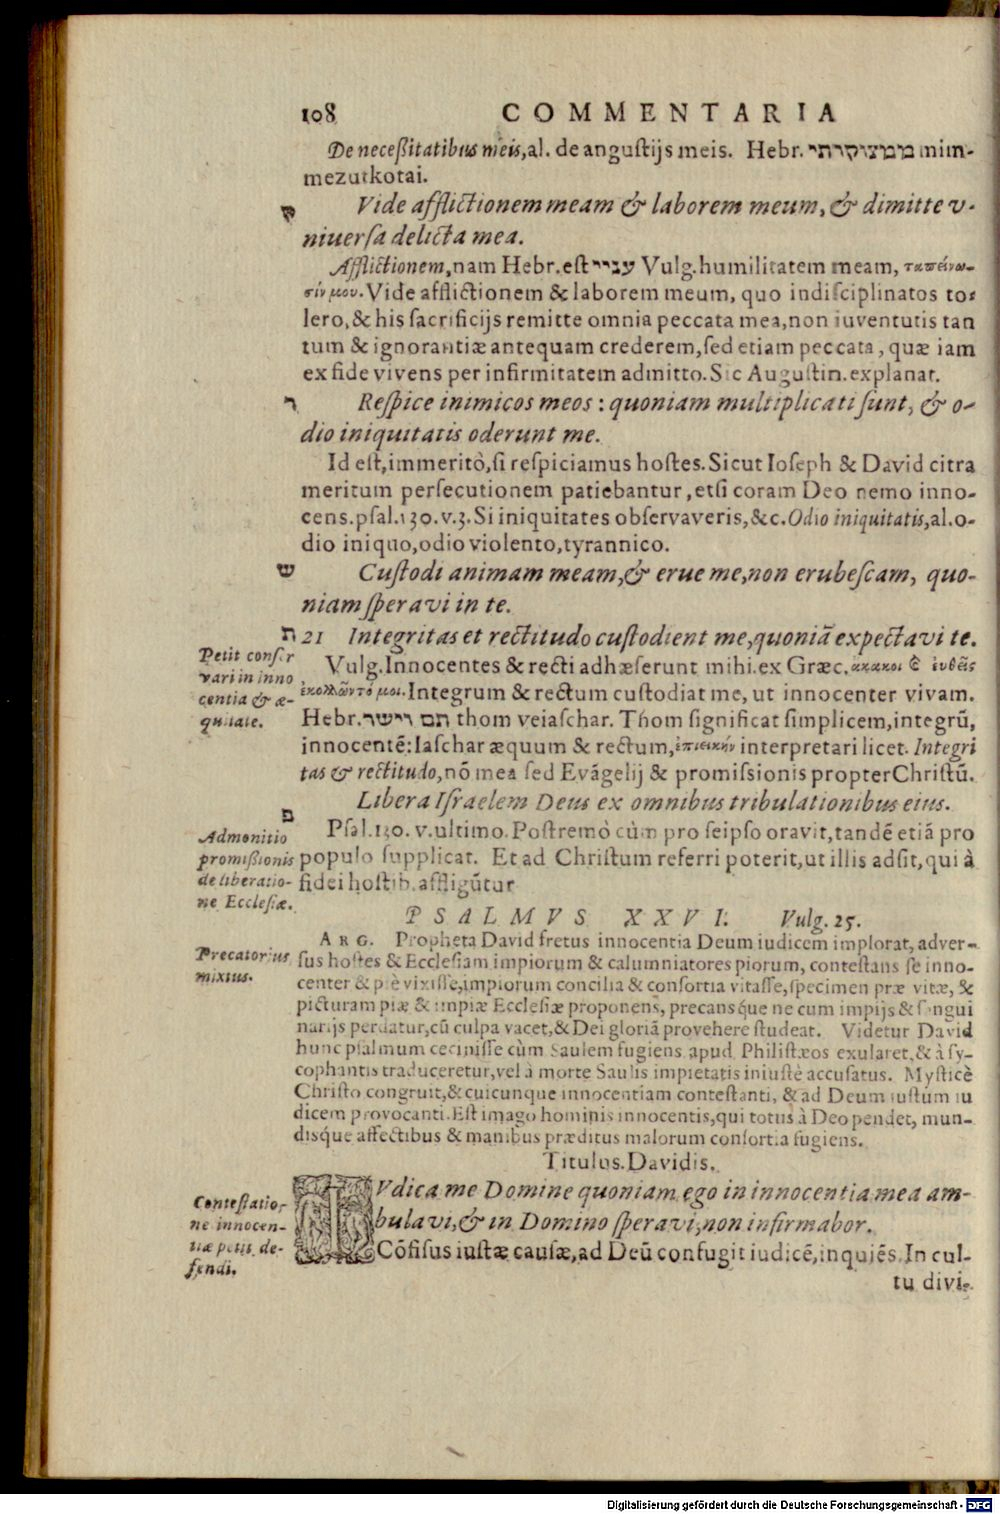 108 COMMENTARIA
De neceßitatibus meis, al. de angustijs meis. Hebr. ממצוקותי mim-
mezutkotai.
ק Vide afflictionem meam & laborem meum, & dimitte v-
niuersa delicta mea.
Afflictionem, nam Hebr. est עניי Vulg. humilitatem meam, ταπείνω-
σίν μου. Vide afflictionem & laborem meum, quo indisciplinatos to-
lero, & his sacrificijs remitte omnia peccata mea, non iuventutis tan
tum & ignorantiæ antequam crederem, sed etiam peccata, quæ iam
ex fide vivens per infirmitatem admitto. Sic Augustin. explanat.
ר Respice inimicos meos: quoniam multiplicati sunt, & o-
dio iniquitatis oderunt me.
Id est, immeritò, si respiciamus hostes. Sicut Ioseph & David citra
meritum persecutionem patiebantur, etsi coram Deo nemo inno-
cens. psal. 130. v. 3. Si iniquitates observaveris, &c. Odio iniquitatis, al. o-
dio iniquo, odio violento, tyrannico.
ש Custodi animam meam, & erue me, non erubescam, quo-
niam speravi in te.
ת 21 Integritas et rectitudo custodient me, quoniã expectavi te.
Petit conser
vari in inno
centia & æ-
quitate.
Vulg. Innocentes & recti adhæserunt mihi. ex Græc. ἄκακοι & εὐθεῖς
ἐκολλῶντό μοι. Integrum & rectum custodiat me, ut innocenter vivam.
Hebr. תם וישר thom veiaschar. Thom significat simplicem, integrũ,
innocentẽ: Iaschar æquum & rectum, ἐπιεικήν interpretari licet. Integri
tas & rectitudo, nõ mea sed Evãgelij & promissionis propter Christũ.
פ Libera Israelem Deus ex omnibus tribulationibus eius.
Admonitio
promißionis
de liberatio-
ne Ecclesiæ.
Psal. 130. v. ultimo. Postremò cùm pro seipso oravit, tandẽ etiã pro
populo supplicat. Et ad Christum referri poterit, ut illis adsit, qui à
fidei hostib. affligũtur
PSALMVS XXVI. Vulg. 25.
Precatorius
mixtus.
ARG. Propheta David fretus innocentia Deum iudicem implorat, adver-
sus hostes & Ecclesiam impiorum & calumniatores piorum, contestans se inno-
center & piè vixisse, impiorum concilia & consortia vitasse, specimen præ vitæ, &
picturam piæ & impiæ Ecclesiæ proponens, precansq́ue ne cum impijs & sangui
narijs perdatur, cũ culpa vacet, & Dei gloriã provehere studeat. Videtur David
hunc psalmum cecinisse cùm Saulem fugiens apud Philistæos exularet, & à sy-
cophantis traduceretur, vel à morte Saulis impietatis iniustè accusatus. Mysticè
Christo congruit, & cuicunque innocentiam contestanti, & ad Deum iustum iu
dicem provocanti. Est imago hominis innocentis, qui totus à Deo pendet, mun-
disque affectibus & manibus præditus malorum consortia fugiens.
Titulus. Davidis.
Contestatio-
ne innocen-
tiæ petit de-
fendi.
IVdica me Domine quoniam ego in innocentia mea am-
bulavi, & in Domino speravi, non infirmabor.
Cõfisus iustæ causæ, ad Deũ confugit iudicẽ, inquiẽs. In cul-
tu divi-
Digitalisierung gefördert durch die Deutsche Forschungsgemeinschaft - DFG